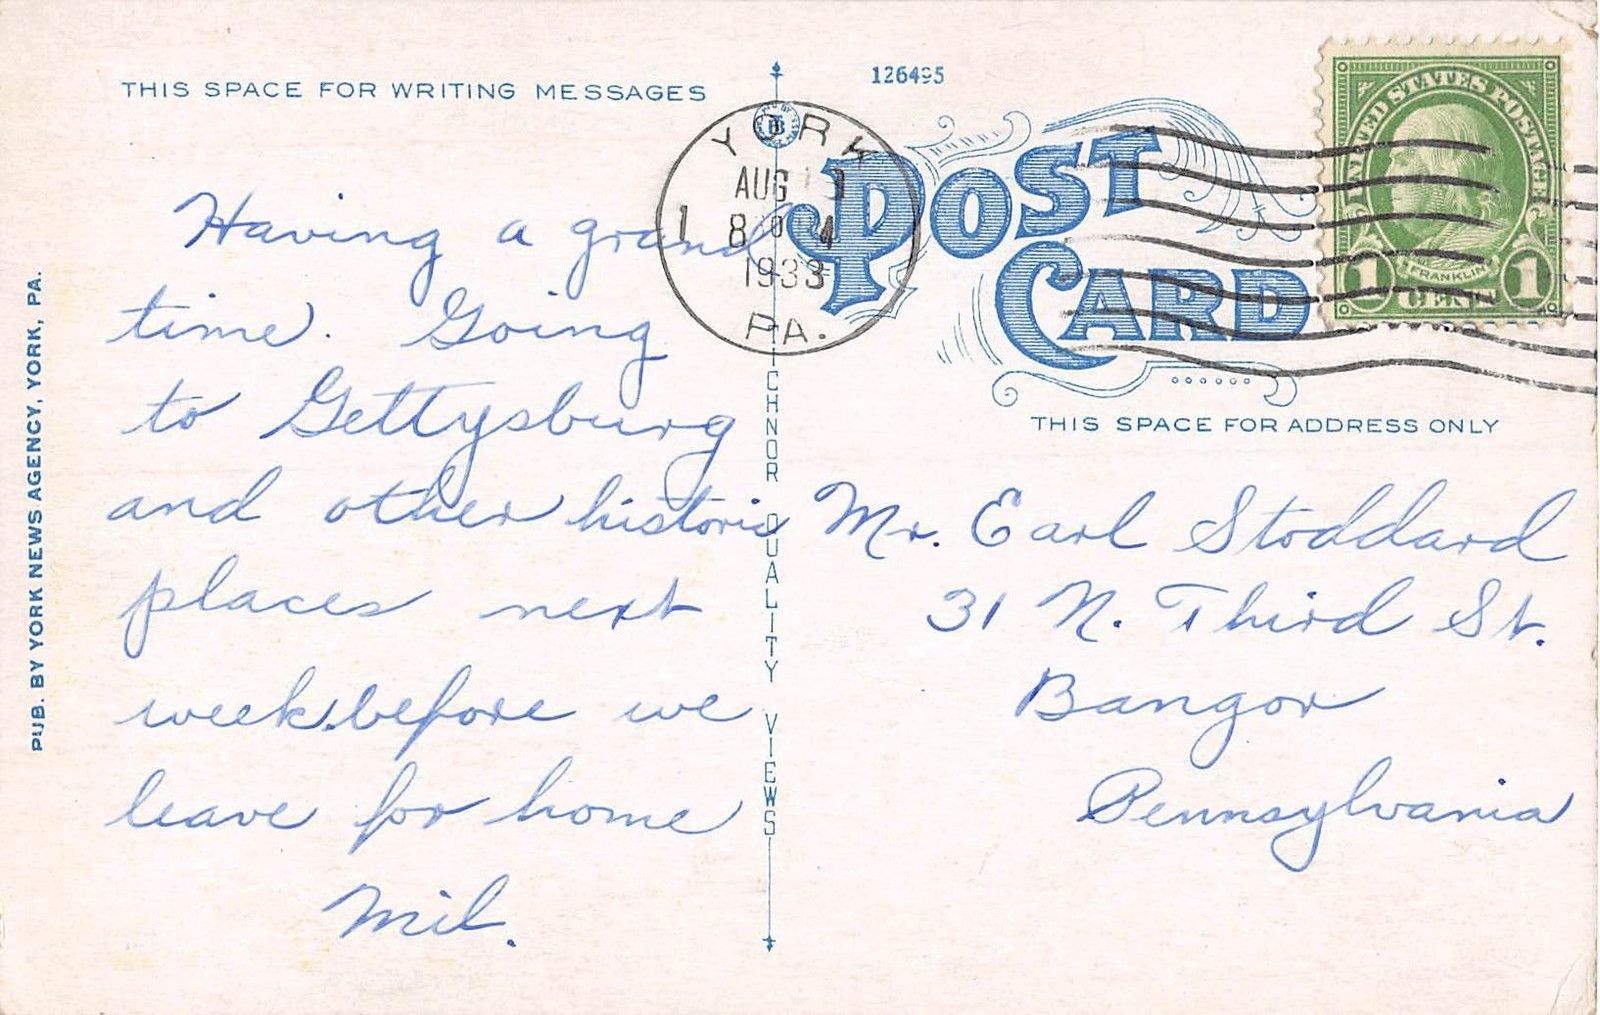 THIS SPACE FOR WRITING MESSAGES
Having a grand
time. Going
to Gettysburg
and other historic
places next
week. before we
leave for home
Mil.
PUB. BY YORK NEWS AGENCY, YORK, PA.
CHNOR QUALITY VIEWS
126495
YORK
AUG
1933
PA.
POST
CARD
UNITED STATES POSTAGE
FRANKLIN
1 CENT 1
THIS SPACE FOR ADDRESS ONLY
Mr. Earl Stoddard
31 N. Third St.
Bangor
Pennsylvania